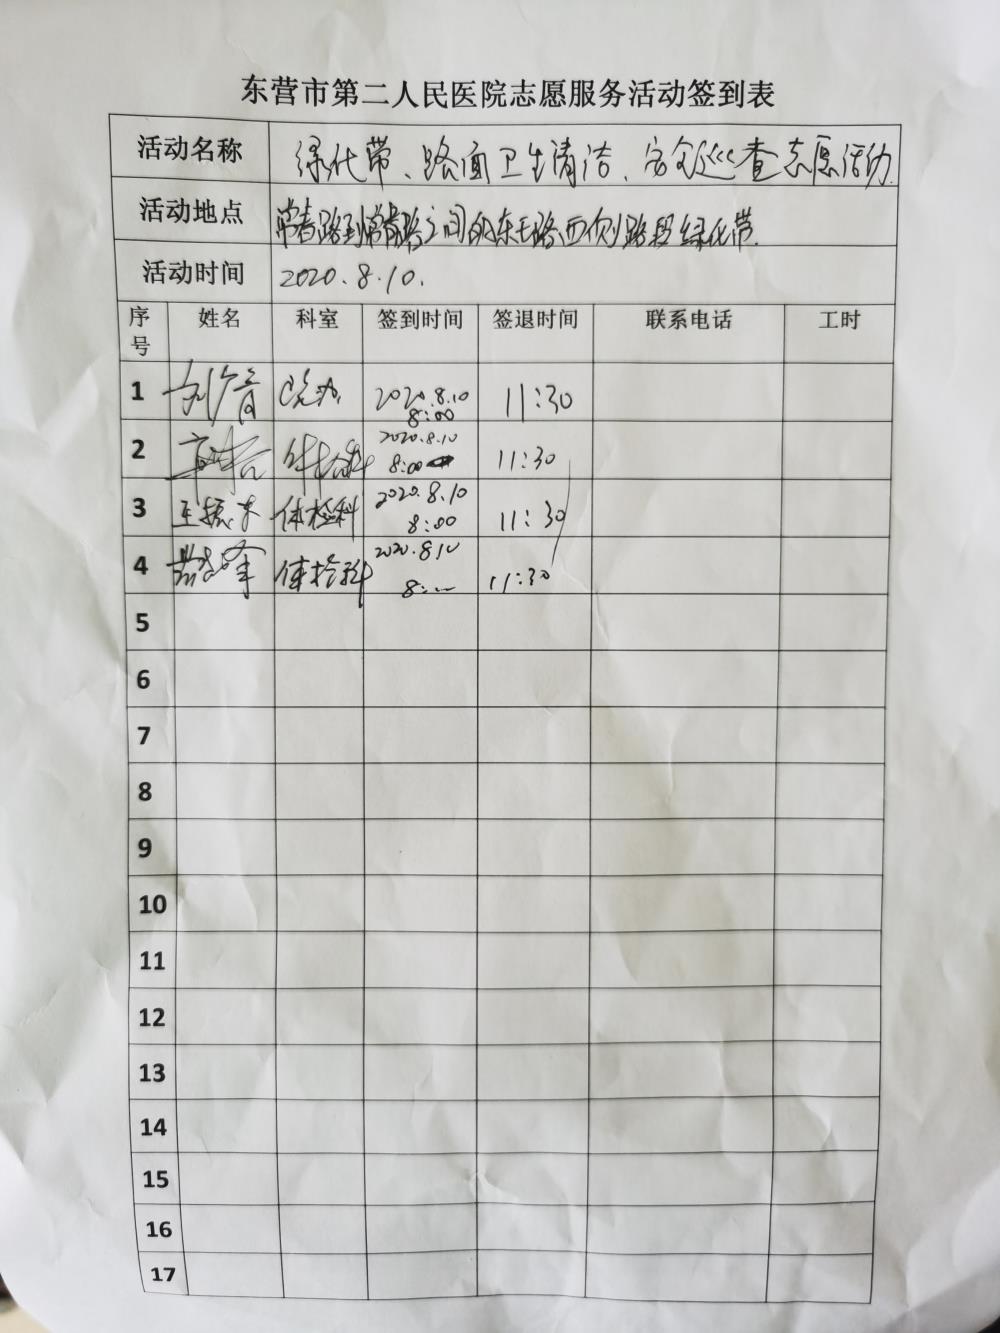 东营市第二人民医院志愿服务活动签到表
活动名称 绿化带、路面卫生清洁、安全巡查志愿活动.
活动地点 路到 路之间的东王路西侧路段绿化带.
活动时间 2020.8.10.
序号 姓名 科室 签到时间 签退时间 联系电话 工时
1 院办 2020.8.10 8:00 11:30
2 体检科 2020.8.10 8:00 11:30
3 王振 体检科 2020.8.10 8:00 11:30
4 体检科 2020.8.10 8: 11:30
5
6
7
8
9
10
11
12
13
14
15
16
17